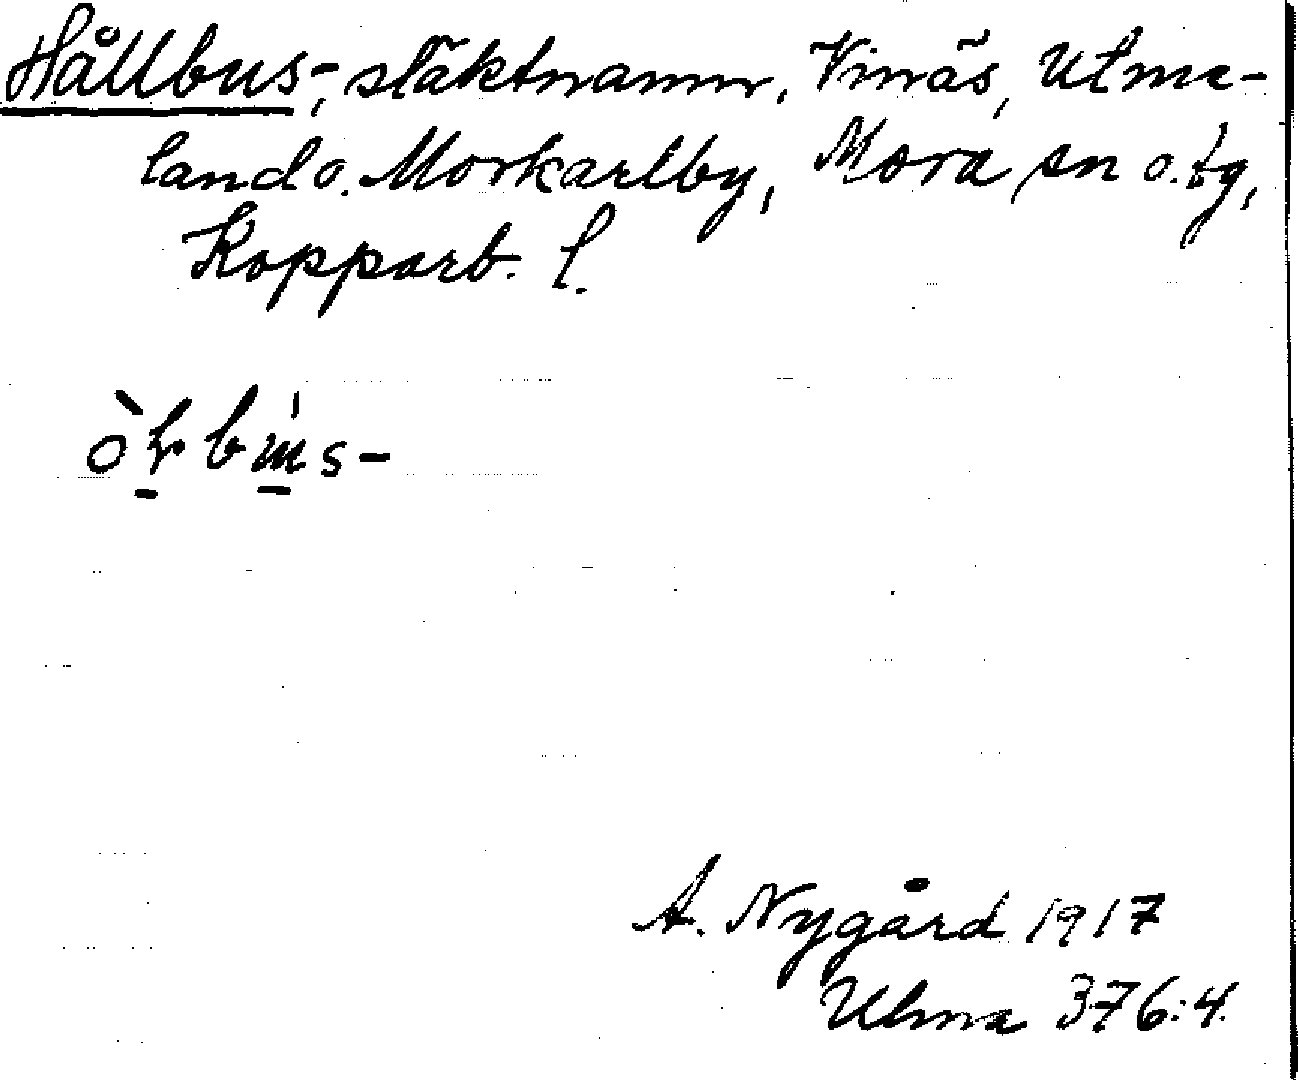 Hållbus-, släktnamn, Vinäs, Utme-
land o. Morkarlby, Mora sn o. tg,
Kopparb. l.
A. Nygård 1917
Ulma 376:4.